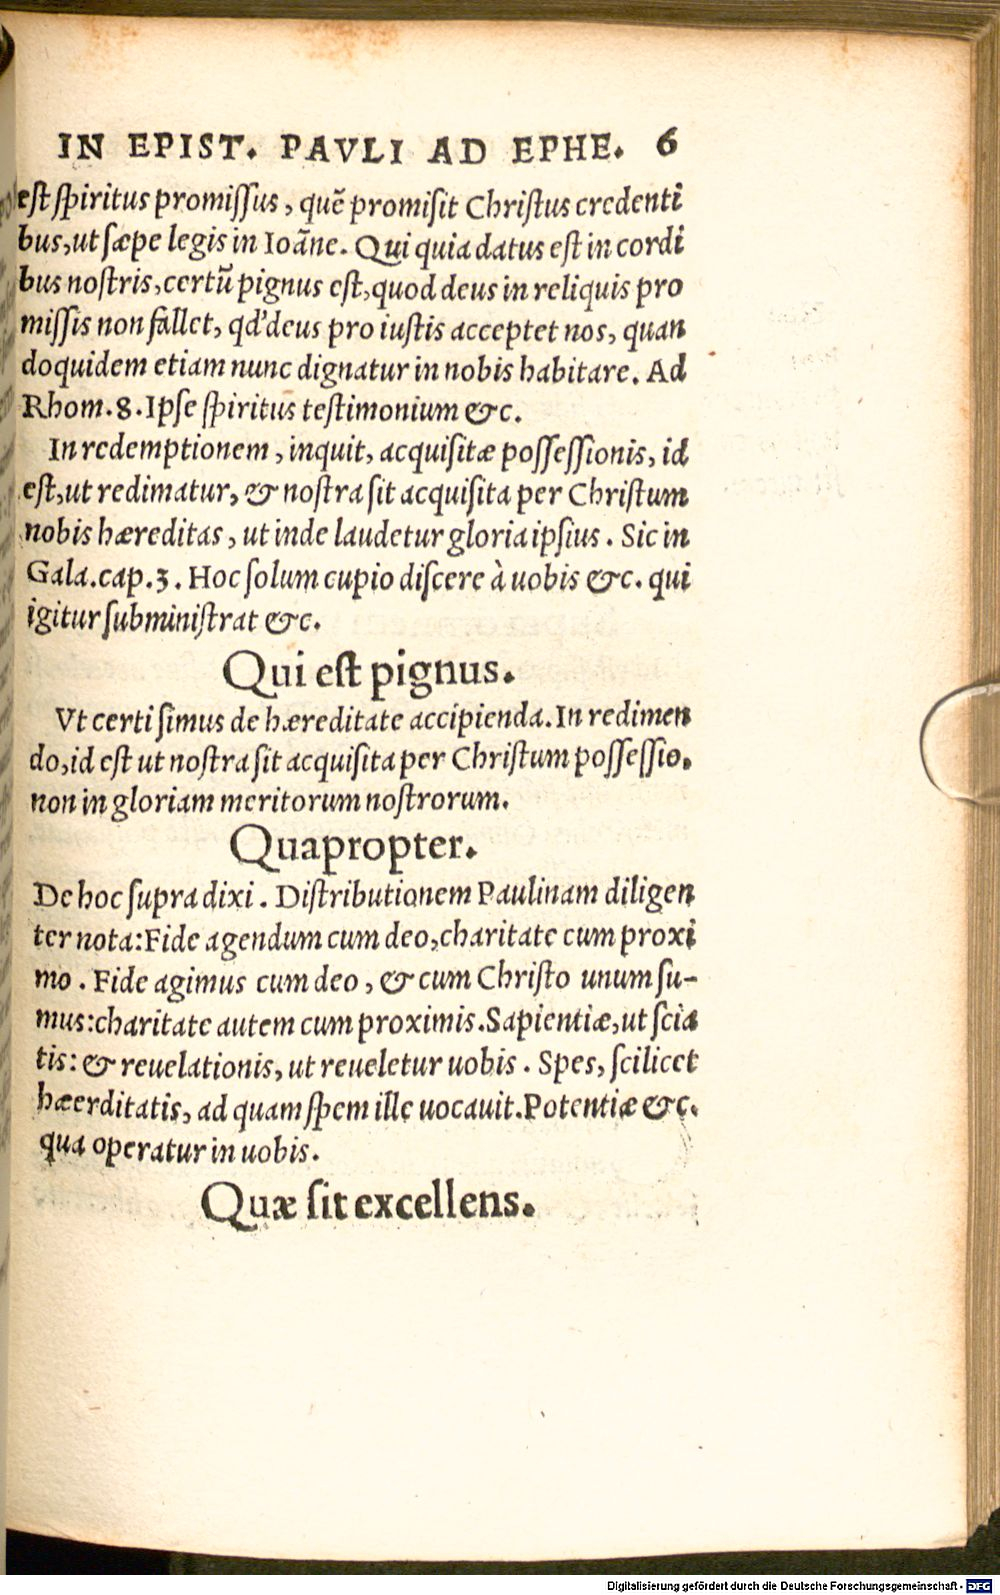 IN EPIST. PAVLI AD EPHE. 6
est spiritus promissus, quẽ promisit Christus credenti
bus, ut sæpe legis in Ioãne. Qui quia datus est in cordi
bus nostris, certũ pignus est, quod deus in reliquis pro
missis non fallet, qd' deus pro iustis acceptet nos, quan
doquidem etiam nunc dignatur in nobis habitare. Ad
Rhom. 8. Ipse spiritus testimonium &c.
In redemptionem, inquit, acquisitæ possessionis, id
est, ut redimatur, & nostra sit acquisita per Christum
nobis hæreditas, ut inde laudetur gloria ipsius. Sic in
Gala. cap. 3. Hoc solum cupio discere à uobis &c. qui
igitur subministrat &c.
Qui est pignus.
Vt certi simus de hæreditate accipienda. In redimen
do, id est ut nostra sit acquisita per Christum possessio.
non in gloriam meritorum nostrorum.
Quapropter.
De hoc supra dixi. Distributionem Paulinam diligen
ter nota: Fide agendum cum deo, charitate cum proxi
mo. Fide agimus cum deo, & cum Christo unum su-
mus: charitate autem cum proximis. Sapientiæ, ut scia
tis: & reuelationis, ut reueletur uobis. Spes, scilicet
hæerditatis, ad quam spem ille uocauit. Potentiæ &c.
qua operatur in uobis.
Quæ sit excellens.
Digitalisierung gefördert durch die Deutsche Forschungsgemeinschaft - DFG